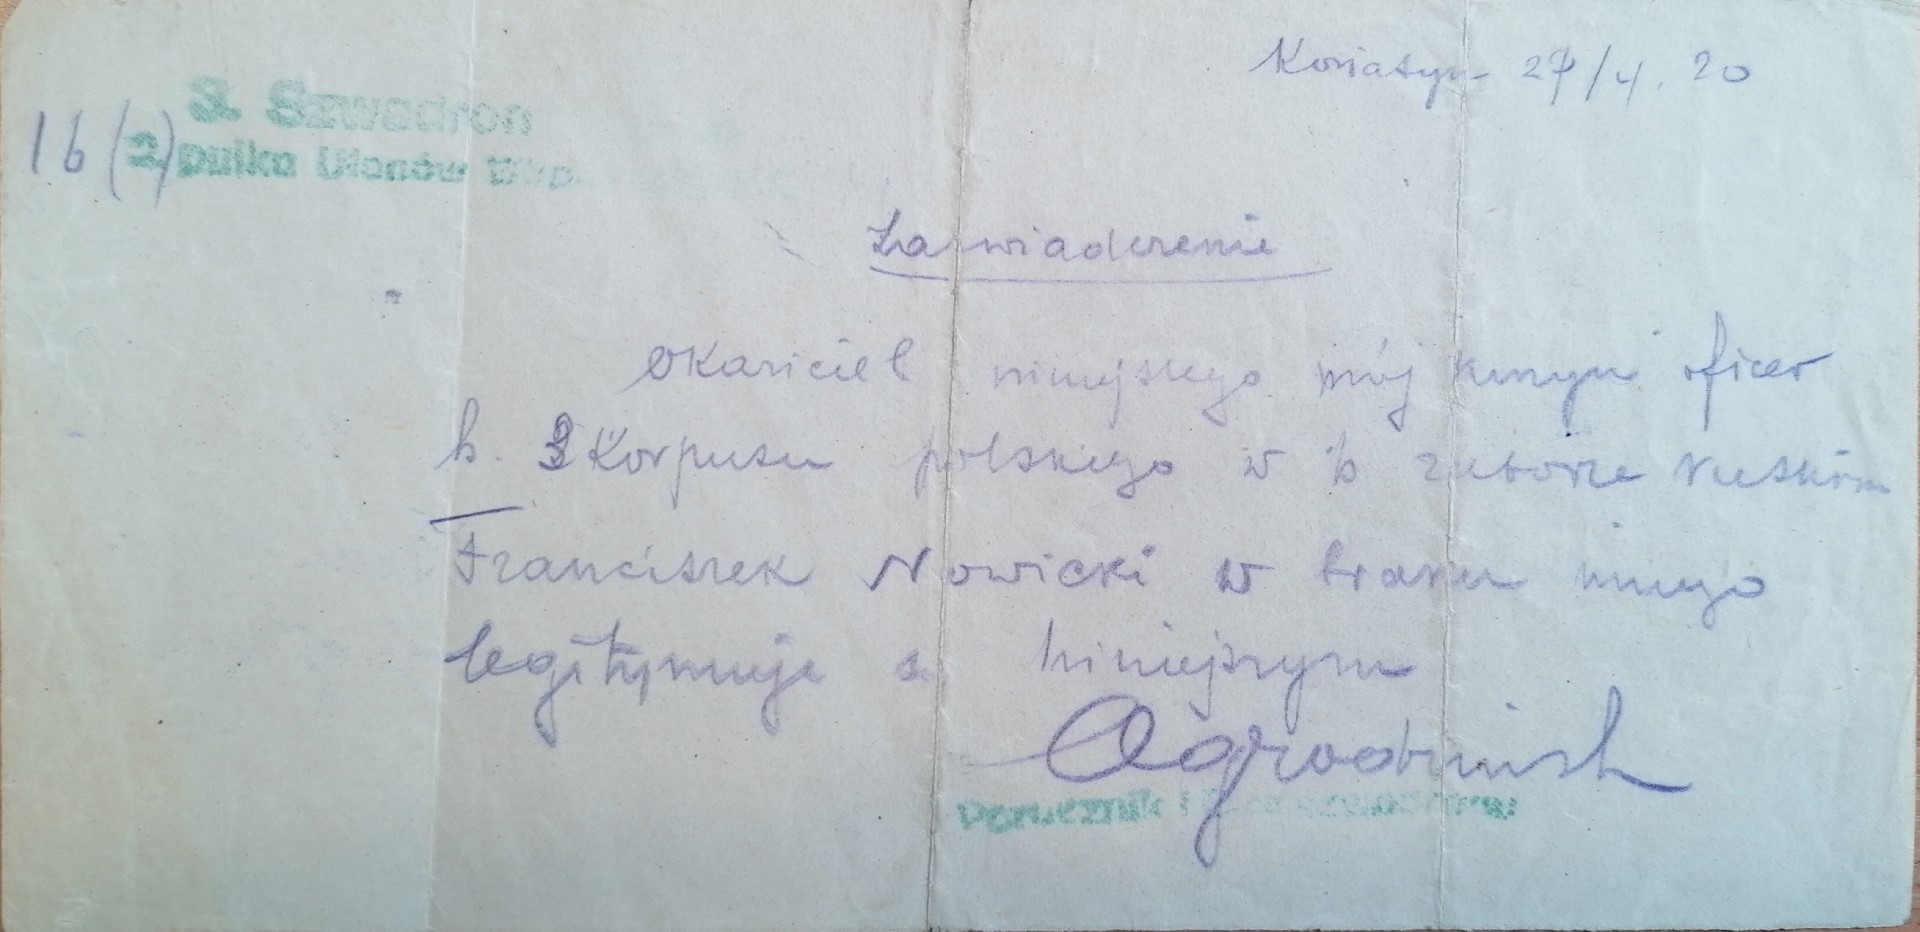 Koziatyn 27/4. 20
3. Szwadron
16 (2) pułku Ułanów Wlkp.
Zaświadczenie
Okaziciel niniejszego mój oficer
b. 3 Korpusu polskiego w b zaborze
Franciszek Nowicki w braku innego
legitymuje s. niniejszym
Ogrodzinski
Porucznik i